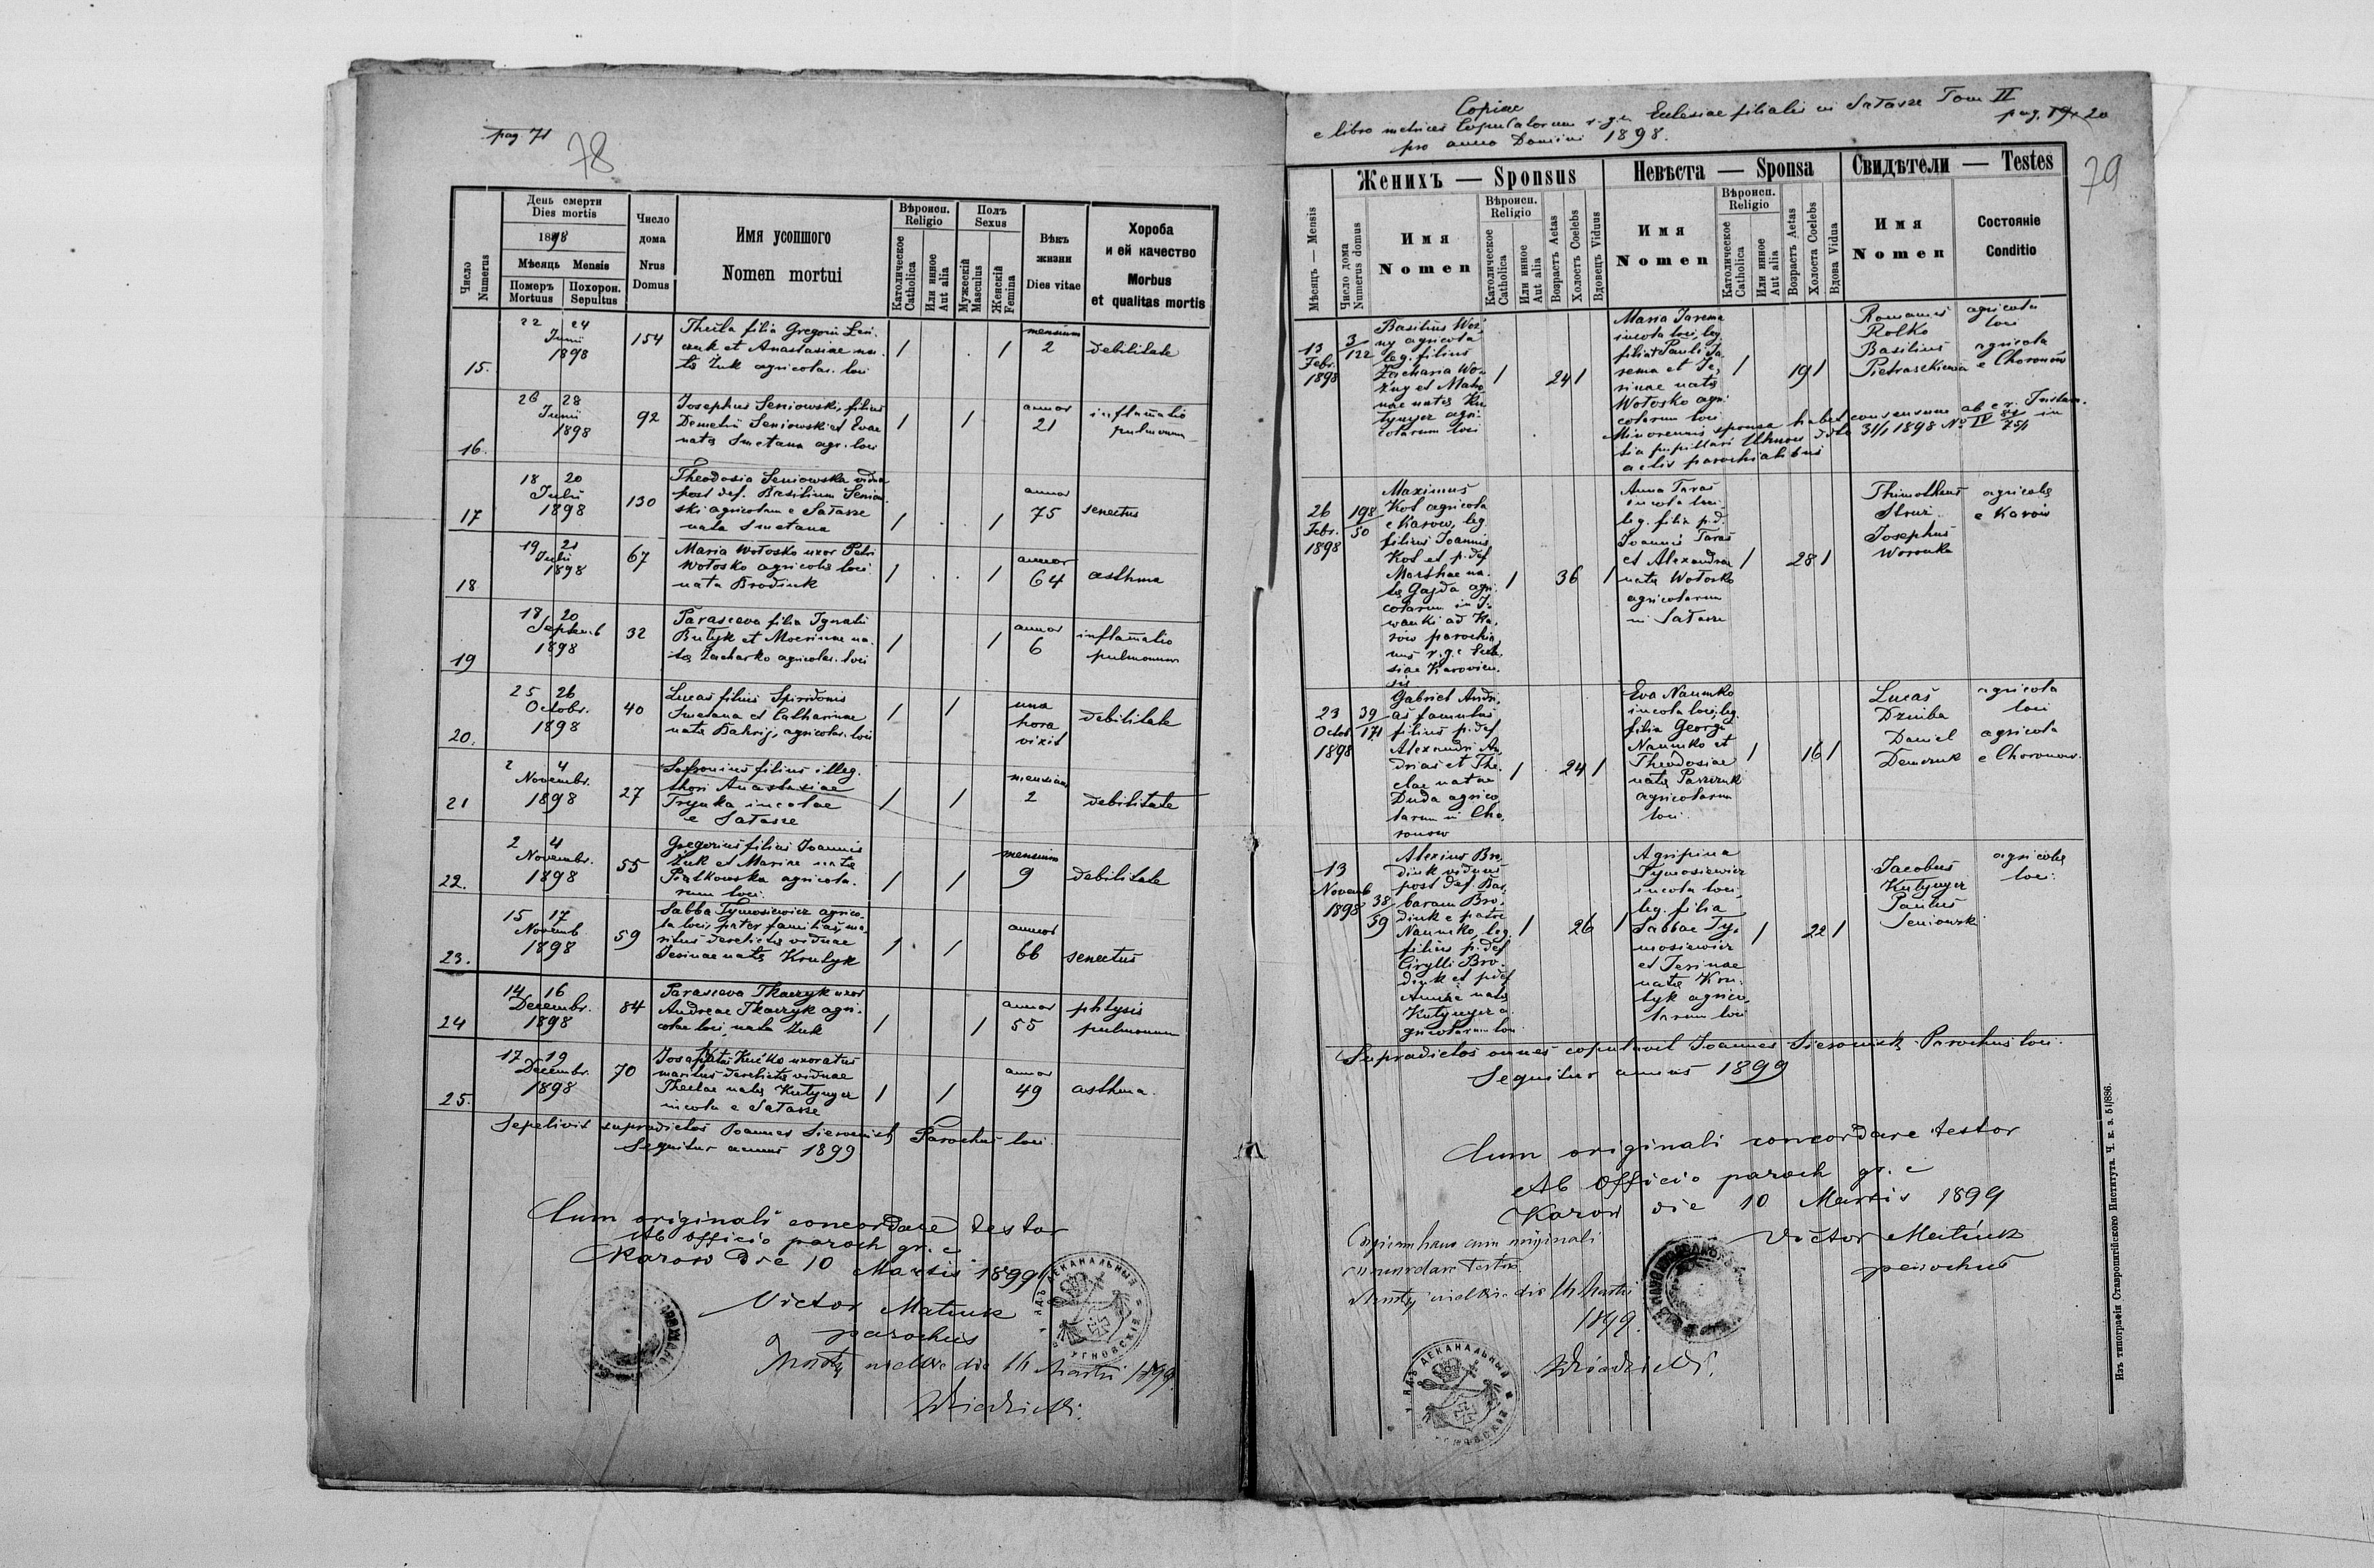 pag. 71
78
Число
Numerus
День смерти
Dies mortis
1898
Мѣсяць Mensis
Померъ
Mortuus
Похорон.
Sepultus
Число
дома
Nrus
Domus
Имя усопшого
Nomen mortui
Вѣроисп.
Religio
Католическое
Catholica
Или инное
Aut alia
Полъ
Sexus
Мужескій
Masculus
Женскій
Femina
Вѣкъ
жизни
Dies vitae
Хороба
и ей качество
Morbus
et qualitas mortis
15.
22 24
Junii
1898
154
Thecla filia Gregorii
et Anastasiae na-
tae Żuk agricolar. loci
1
1
mensium
2
debilitate
16.
26 28
Junii
1898
92
Josephus Seniowski, filius
Demetrii Seniowski et Evae
natae Smetana agr. loci
1
1
annor
21
inflamatio
pulmonum
17
18 20
Julii
1898
130
Theodosia Seniowska vidua
post def. Basilium Seniow-
ski agricolam e Sałasze
nata Smetana
1
1
annor
75
senectus
18
19 21
Julii
1898
67
Maria Wołosko uxor Petri
Wołosko agricolae loci
nata Brodiuk
1
1
annor
64
asthma
19
18 20
Septemb
1898
32
Parasceva filia Ignatii
Butyk et Mocrinae na-
tae Zacharko agricolar. loci
1
1
annor
6
inflamatio
pulmonum
20.
25 26
Octobr.
1898
40
Lucas filius Spiridonis
Smetana et Catharinae
natae Bahrij, agricolar. loci
1
1
una
hora
vixit
debilitate
21
2 4
Novembr.
1898
27
Sofronius filius illeg.
thori Anastasiae
Trynka incolae
e Sałasze
1
1
mensium
2
debilitate
22.
2 4
Novembr.
1898
55
Gregorius filius Joannis
Żuk et Mariae natae
Piatkowska agricola-
rum loci
1
1
mensium
9
debilitate
23.
15 17
Novemb
1898
59
Sabba Tymosiewicz agrico-
la loci, pater familias, ma-
ritus derelictae viduae
Jerinae natae Krutyk
1
1
annor
66
senectus
24
14 16
Decembr.
1898
84
Parasceva Tkaczyk uxor
Andreae Tkaczyk agri-
colae loci, nata Żuk
1
1
annor
55
phtysis
pulmonum
25.
17 19
Decembr.
1898
70
Josaphat Kućko uxoratus
maritus derelictae viduae
Theclae natae Kutynyer
incola e Sałasze
1
1
annor
49
asthma.
Sepelivit supradictos Joannes Parochus loci
Sequitur annus 1899
Cum originali concordare testor
Ab officio paroch gr. c
Karow die 10 Martii 1899
Victor Matiuk
parochus
die 14 Martii 1899.
Copiae
e libro metrices Copulatorum r. g. c. Ecclesiae filialis in Sałasze Tom II
pro anno Domini 1898.
pag. 19 20
79
Женихъ — Sponsus
Невѣста — Sponsa
Свидѣтели — Testes
Мѣсяць — Mensis
Число дома
Numerus domus
Имя
Nomen
Вѣроисп.
Religio
Католическое
Catholica
Или инное
Aut alia
Возрастъ Aetas
Холостъ Coelebs
Вдовецъ Viduus
Имя
Nomen
Вѣроисп.
Religio
Католическое
Catholica
Или инное
Aut alia
Возрастъ Aetas
Холоста Coelebs
Вдова Vidua
Имя
Nomen
Состояніе
Conditio
13
Febr.
1898
3
122
Basilius Woź-
ny agricola
leg. filius
Zacharia Wo-
źny et Matro
nae natae Ku
tynyer agri-
colarum loci
1
24
1
Maria Jarema
incola loci, leg.
filia Pauli Ja-
rema et Je-
rinae natae
Wołosko agri-
colarum loci
1
19
1
Romanus
Rołko
Basilius
Pietraszkiewicz
agricola
loci
agricola
e Choronów
Minorennis sponsa habet consensum ab c. r. Instan-
tia pupillari Uhnow ddto 31/1 1898 No IV in
actis parochialibus
26
Febr.
1898
198
50
Maximus
Kot agricola
e Karow, leg.
filius Joannis
Kot et p. def
Marthae na-
tae Gajda agri-
colarum in I-
wanki ad Ka-
rów parochia
nus r. g. c. Eccle-
siae Karovien-
sis
1
36
1
Anna Taras
incola loci
leg. filia p. d.
Joannis Taras
et Alexandrae
natae Wołosko
agricolarum
in Sałasze
1
28
1
Thimotheus
Struz
Josephus
Woronka
agricolae
e Karów
23
Octob
1898
39
171
Gabriel Andri-
as famulus
filius p. def
Alexandri An-
drias et The-
clae natae
Duda agrico-
larum in Cho-
ronow
1
24
1
Eva Naumko
incola loci, leg.
filia Georgii
Naumko et
Theodosiae
natae Paszczuk
agricolarum
loci
1
16
1
Lucas
Dziuba
Daniel
Demczuk
agricola
loci
agricola
e Choronow.
13
Novemb
1898
38
59
Alexius Bro-
diuk viduus
post def. Bar-
baram Bro-
diuk e patre
Naumko, leg.
filius p. def
Cirylli Bro-
diuk et p. def
Annae natae
Kutynyer a-
gricolarum loci
1
26
1
Agripina
Tymosiewicz
incola loci
leg. filia
Sabbae Ty-
mosiewicz
et Jerinae
natae Kru-
tyk agrico-
larum loci
1
22
1
Jacobus
Kutynyer
Paulus
Seniowski
agricolae
loci.
Supradictos omnes copulavit Joannes Parochus loci.
Sequitur annus 1899
Cum originali concordare testor
Ab Officio paroch gr. c
Karow die 10 Martii 1899
Victor Matiuk
parochus
Copiam hanc cum originali
concordare testor
die 14 Martii
1899.
ДЕКАНАЛЬНЫЙ
УГНОВСКІЙ
Изъ типографіи Ставропигійского Института. Ч. к. з. 51/886.